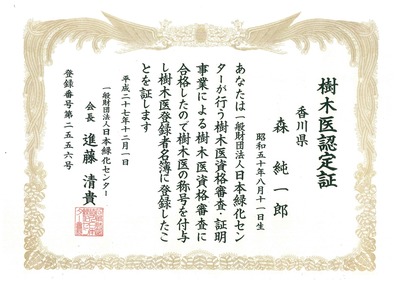 樹木医認定証
香川県
森 純一郎
昭和五十年八月十一日生
あなたは一般財団法人日本緑化セン
ターが行う樹木医資格審査・証明
事業による樹木医資格審査に
合格したので樹木医の称号を付与
し樹木医登録者名簿に登録したこ
とを証します
平成二十七年十二月一日
一般財団法人日本緑化センター
会長 進藤 清貴
登録番号第二五五六号